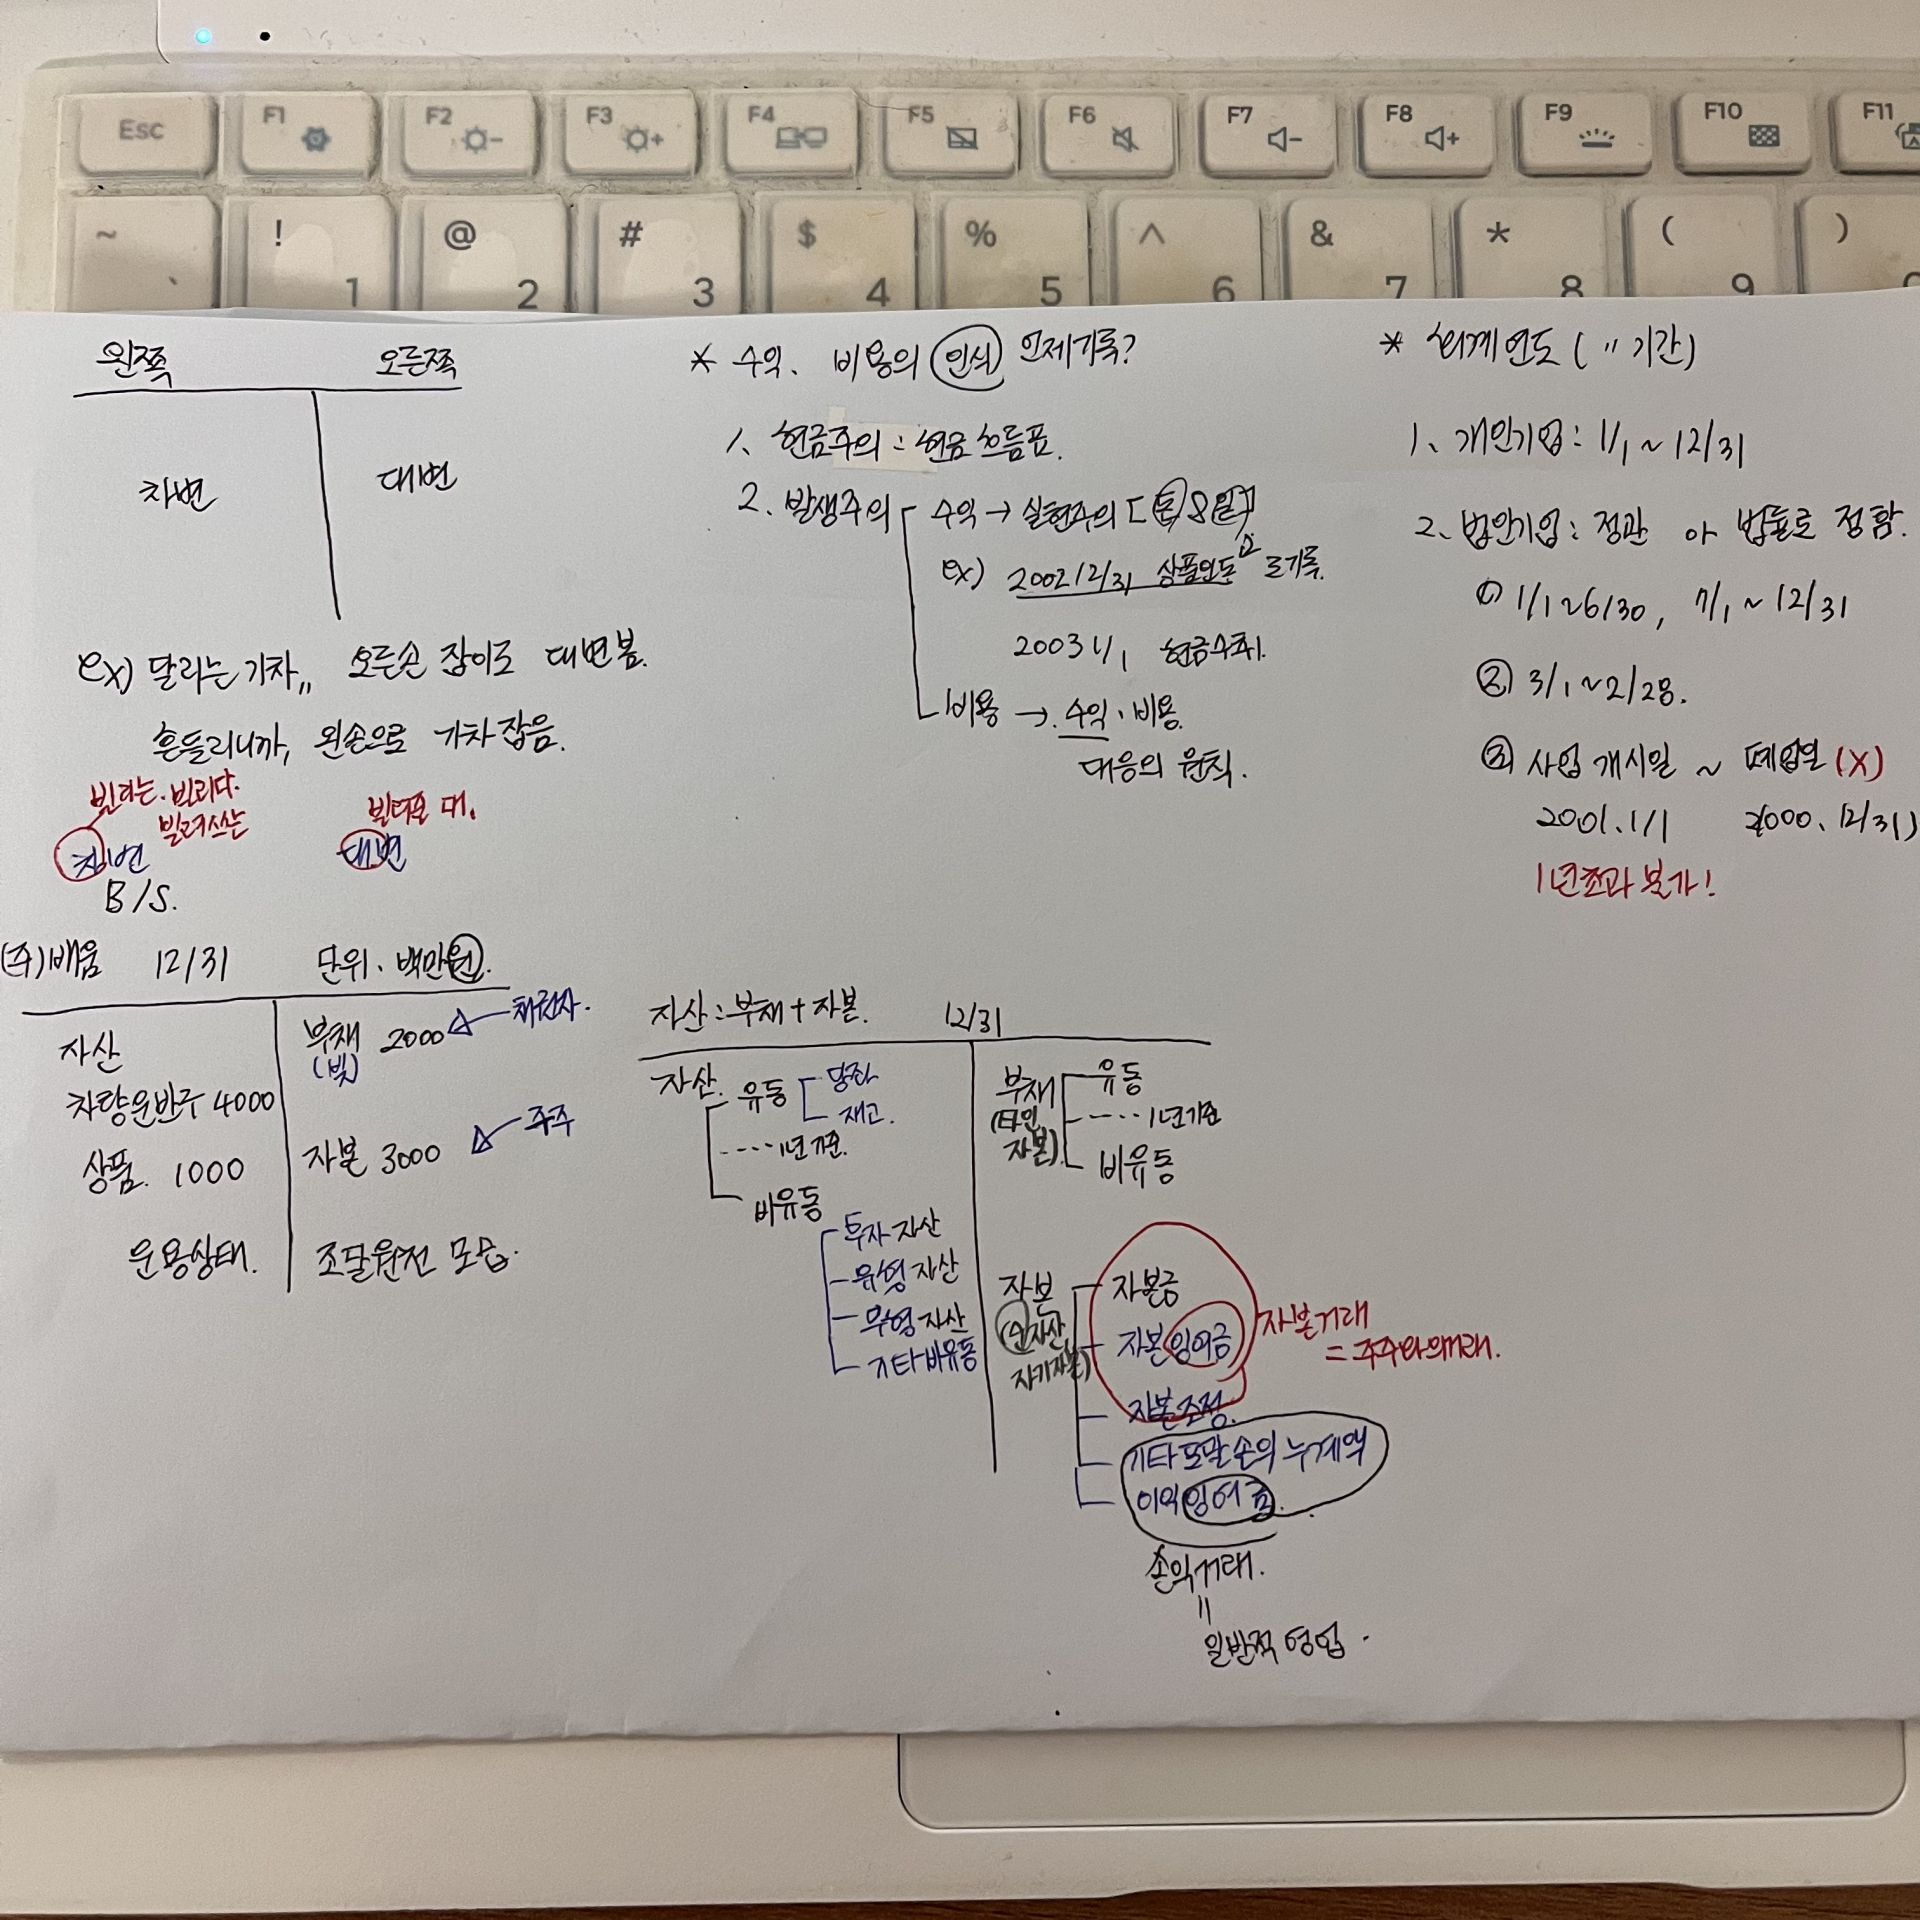 Esc F1 F2 F3 F4 F5 F6 F7 F8 F9 F10 F11
~ ! @ # $ % ^ & * ( )
` 1 2 3 4 5 6 7 8 9
왼쪽 오른쪽
차변 대변
ex) 달리는 기차,, 오른손 잡이로 대변봄.
흔들리니까, 왼손으로 기차 잡음.
빌리는. 빌리다.
빌려쓰는
빌려준 대.
차변 대변
B/S.
(주)배움 12/31 단위. 백만원.
자산
차량운반구 4000
상품. 1000
운용상태.
부채 2000 채권자.
(빚)
자본 3000 주주
조달원천 모습.
* 수익. 비용의 인식 언제기록?
1. 현금주의 : 현금 흐름표.
2. 발생주의 수익 → 실현주의
ex) 2002 12/31 상품인도 로기록.
2003 1/1 현금수취.
비용 → 수익. 비용.
대응의 원칙.
* 회계연도 ( " 기간)
1. 개인기업 : 1/1 ~ 12/31
2. 법인기업 : 정관 or 법률로 정함.
① 1/1 ~ 6/30, 7/1 ~ 12/31
② 3/1 ~ 2/28.
③ 사업 개시일 ~ 폐업일 (X)
2001. 1/1 2000. 12/31)
1년초과 불가!
자산 : 부채 + 자본. 12/31
자산. 유동 당좌
재고.
---- 1년 기준.
비유동
투자 자산
유형 자산
무형 자산
기타 비유동
부채 유동
(타인 ---- 1년기준
자본). 비유동
자본 자본금
(순자산, 자본잉여금
자기자본)
자본거래
= 주주와의거래.
자본조정.
기타포괄손익 누계액
이익잉여금.
손익거래.
=
일반적 영업.